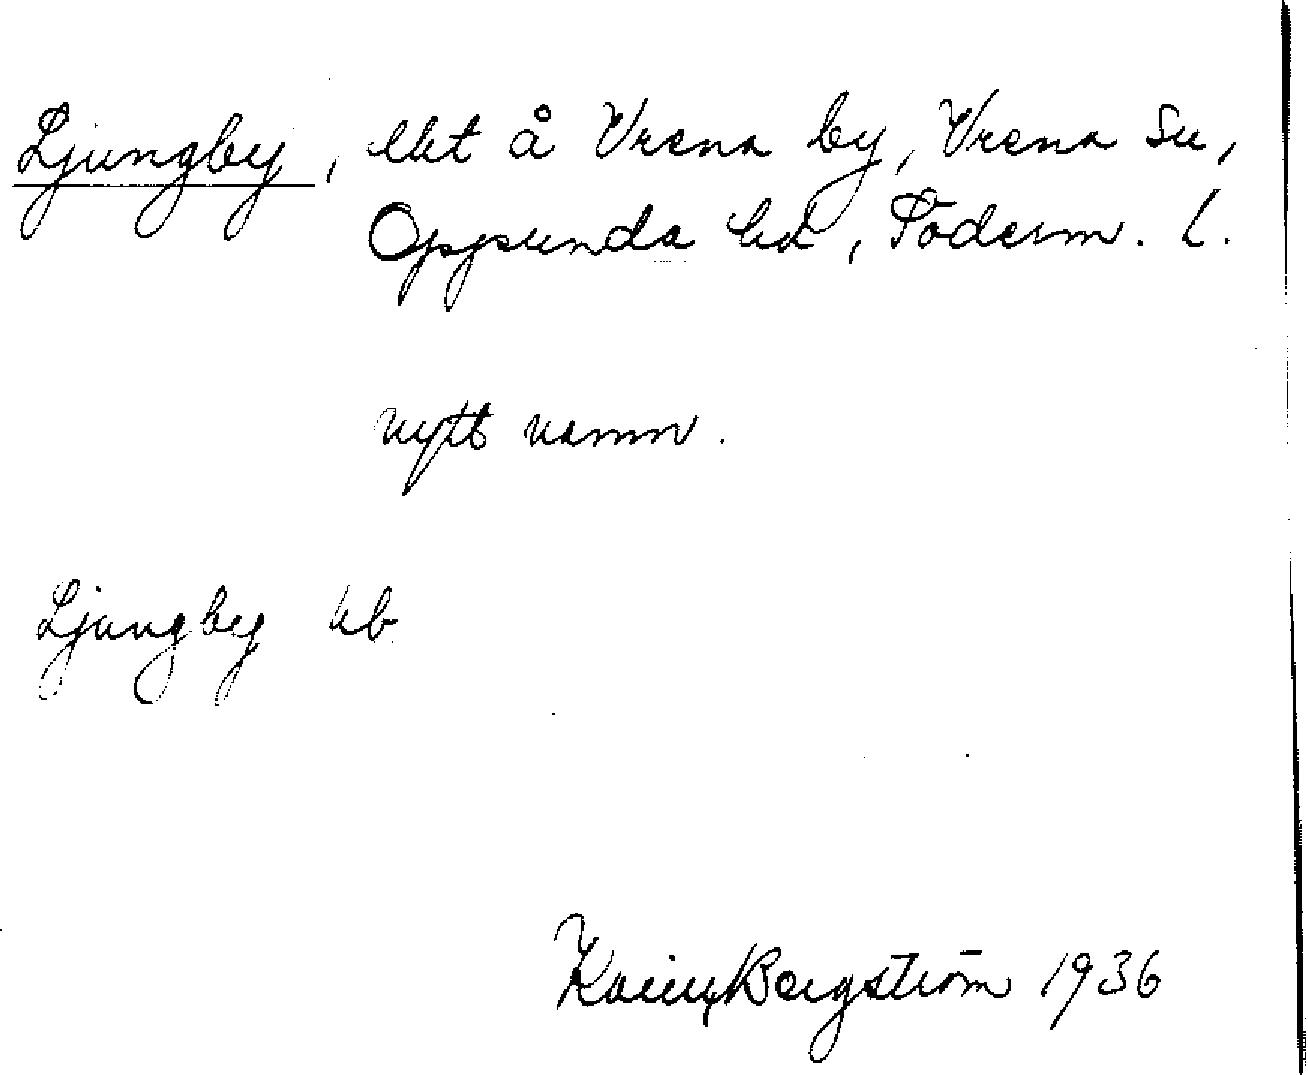 Ljungby, lht å Vrena by, Vrena sn,
Oppunda hd, Söderm. l.
nytt namn.
Ljungby ub
Bergström 1936